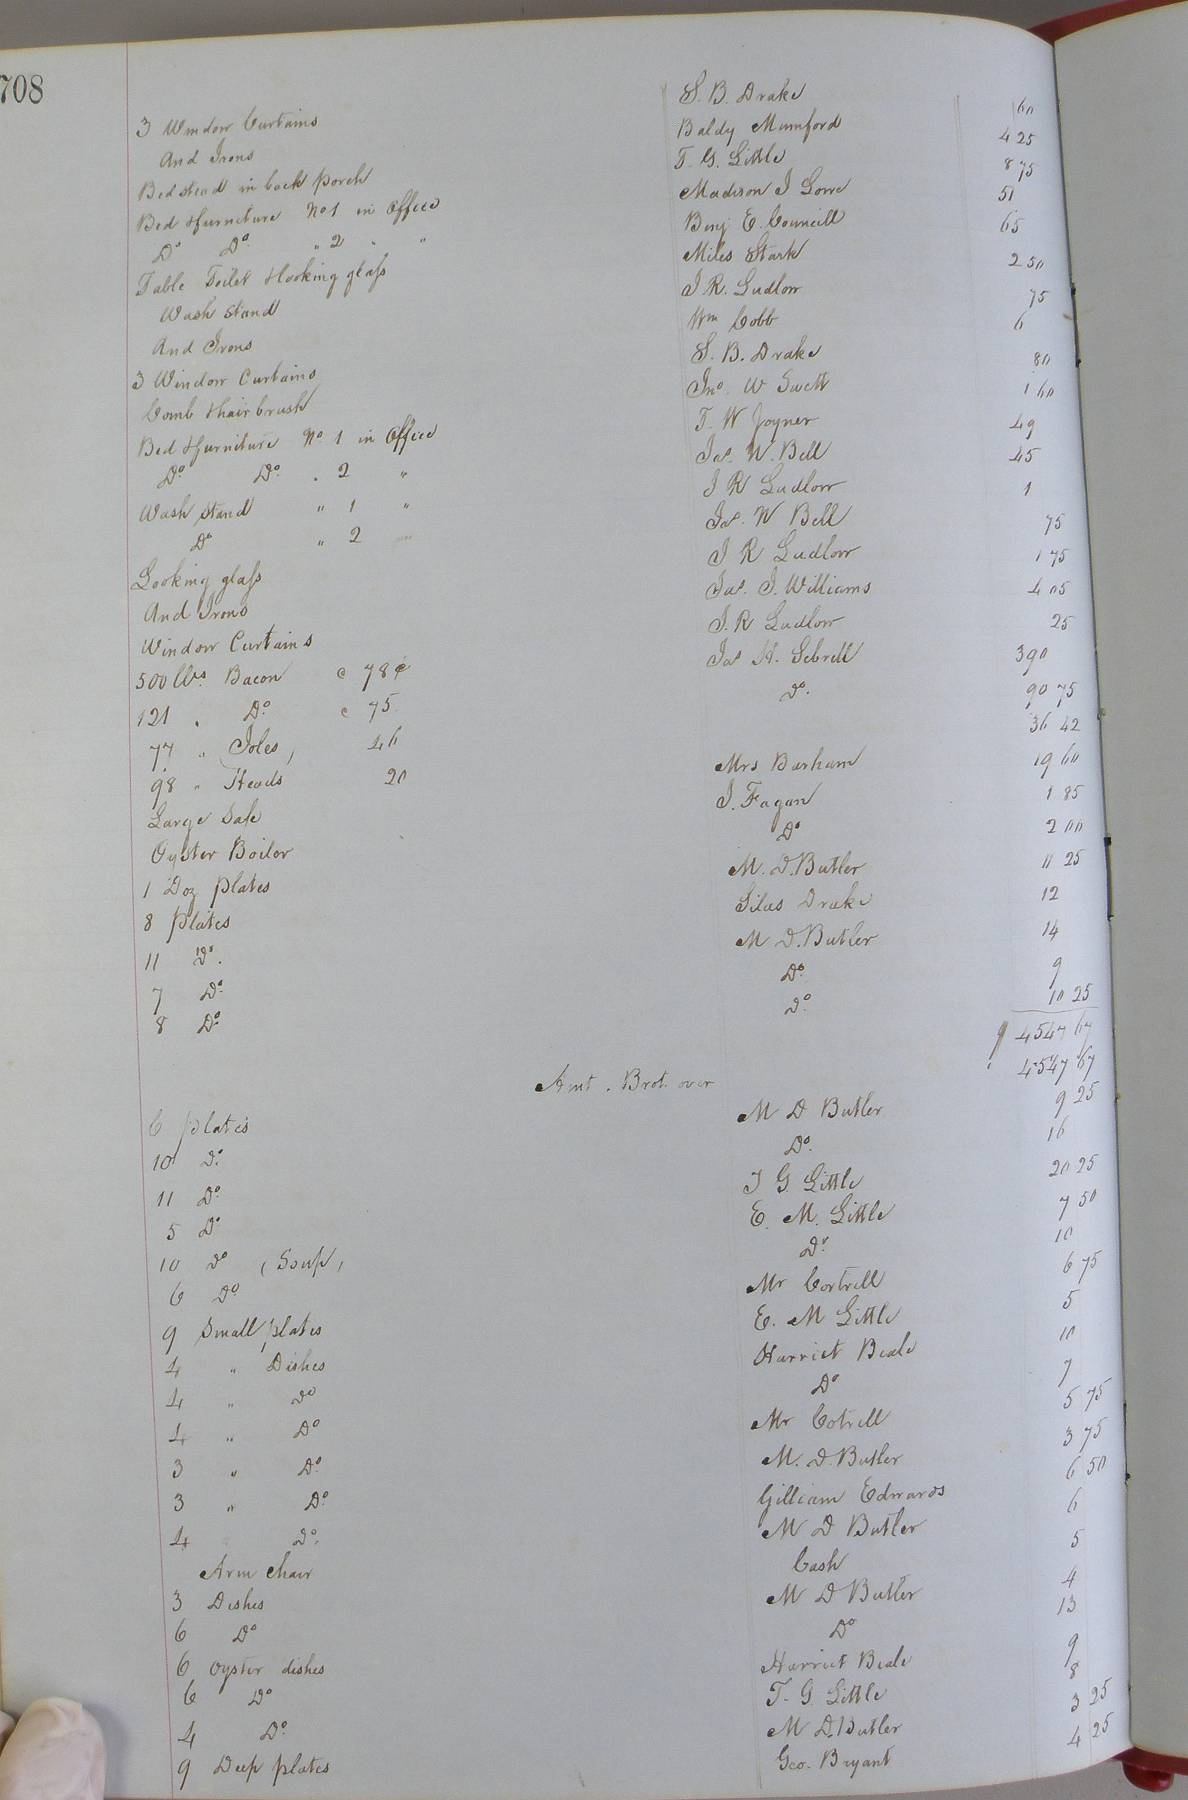 708
3 Window Curtains S. B. Drake 60
And Irons Baldy Mumford 4 25
Bedstead in back porch T. G. Little 8 75
Bed & furniture No 1 in Office Madison J Lowe 51
Do Do " 2 " " Benj E. Councill 65
Table Toilet & looking glass Miles Stark 2 50
Wash Stand J R. Ludlow 75
And Irons Wm Cobb 6
3 Window Curtains S. B. Drake 80
Comb & hair brush Jno. W Swett 1 60
Bed & furniture No 1 in Office T. W Joyner 49
Do Do " 2 " Jas. W. Bell 45
Wash Stand " 1 " J R Ludlow 1
Do " 2 " Jas. W Bell 75
Looking glass J R Ludlow 1 75
And Irons Jas. J. Williams 4 05
Window Curtains J. R Ludlow 25
500 lbs Bacon c 78¢ Jas H. Sebrell 390
121 " Do c 75 Do. 90 75
77 " Joles, 46 36 42
98 " Heads 20 Mrs Barham 19 60
Large Safe J. Fagan 1 85
Oyster Boiler Do 2 00
1 Doz plates M. D. Butler 11 25
8 plates Silas Drake 12
11 Do. M D. Butler 14
7 Do Do 9
8 Do Do 10 25
4547 67
Amt. Brot. over 4547 67
6 plates M D Butler 9 25
10 Do Do. 16
11 Do J G. Little 20 25
5 Do E. M. Little 7 50
10 Do (Soup, Do 10
6 Do Mr Cortrell 6 75
9 Small plates E. M Little 5
4 " Dishes Harriet Beale 10
4 " Do Do 7
4 " Do Mr Cotrell 5 75
3 " Do M. D. Butler 3 75
3 " Do Gilliam Edwards 6 50
4 Do. M D Butler 6
Arm Chair Cash 5
3 Dishes M D Butler 4
6 Do Do 13
6 Oyster dishes Harriet Beale 9
6 Do T. G. Little 8
4 Do M D. Butler 3 25
9 Deep plates Geo. Bryant 4 25